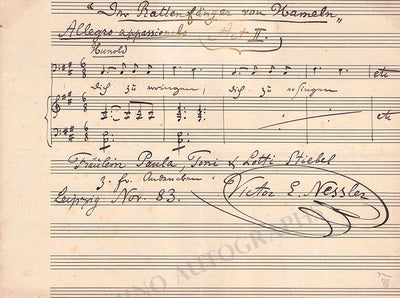 "Der Rattenfänger von Hameln"
Allegro appassionato Act II.
Hunold
etc
dich zu erringen, dich zu ersingen
etc
Fräulein Paula, Toni & Lotti Stiebel
z. fr. Andenken
Leipzig Nov. 83. Victor E. Nessler